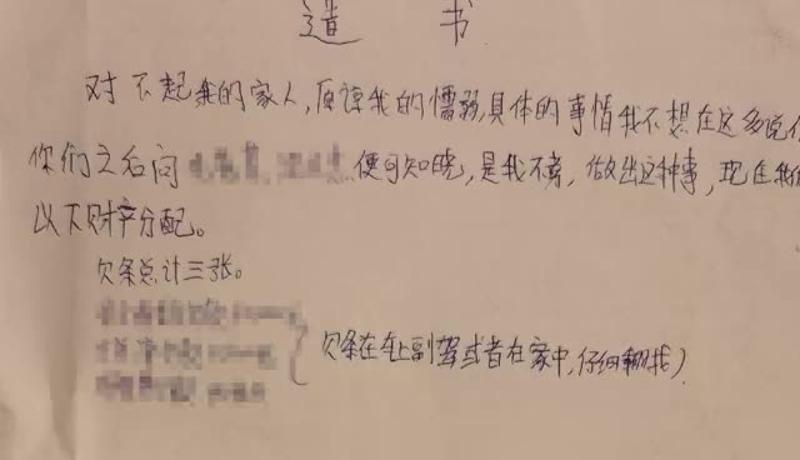 遗 书
对不起我的家人，原谅我的懦弱，具体的事情我不想在这多说什
你们之后问 便可知晓，是我不孝，做出这种事，现在我
以下财产分配。
欠条总计三张。
欠条在车上副驾或者在家中，仔细翻找）